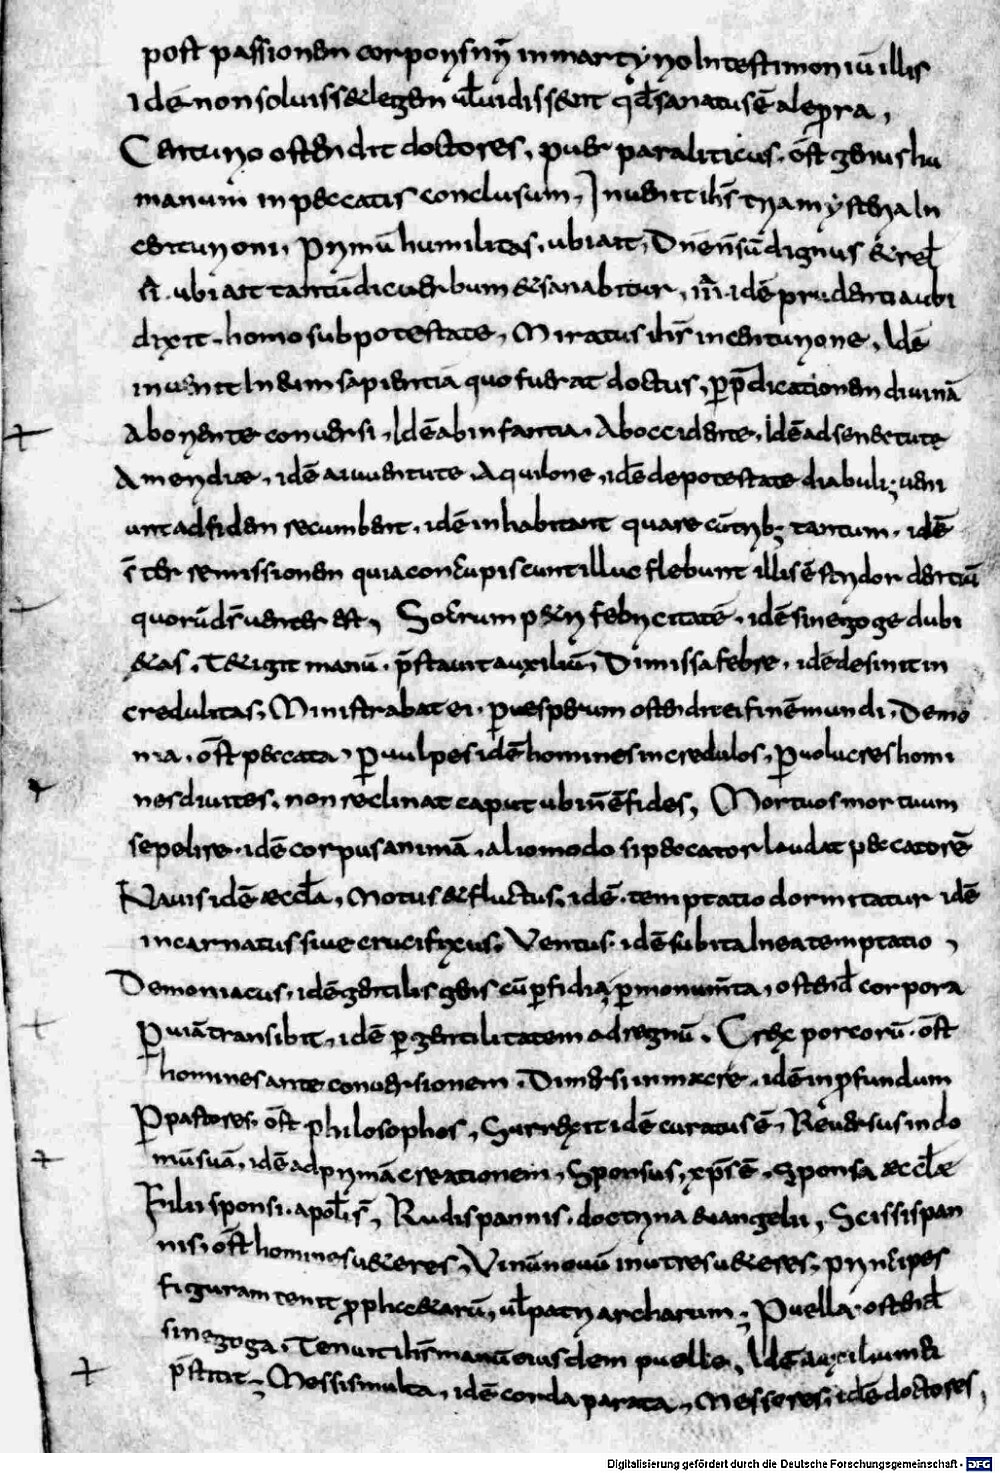 post passionem corporis nr̄i in martyrio In testimoniū illis
idē non soluisset legem ul̄ uidissent qd̄ sanatus ē a lepra,
Centurio ostendit doctores, puer paraliticus. ost̄ genus hu
manum in peccatis conclusum, Inuenit ih̄s tria mysteria In
centurioni, Primū humilitas, ubi ait, Dn̄e nsū dignus & rel̄
ubi ait tantū dic uerbum & sanabitur, idē prudentia ubi
dixit homo sub potestate, Miratus ih̄s in centurione, Idē
inuenit In eum sapientia quo fuerat doctus, p̱ p̄dicationem diuinā
Ab oriente conuersi, Idē ab infantia. Ab occidente, Idē ad senectute
A meridiae, idē a iuuentute. Aquilone, idē de potestate diabuli; ueni
unt ad fidem recumbent, idē inhabitant quare cū trib; tantum. idē
remissionem quia concupiscunt illuc flebunt illis ē stridor dentiū
quorū dr̄ uenter est, Socrum petri febricitatē. idē sinegoge dubi
etas, Tetigit manū. p̄stauit auxiliū, Dimissa febre. idē desinit in
credulitas, Ministrabat ei. p̱ uesperum ostendit ei finē mundi, Demo
nia. ost̄ peccata, p̱ uulpes idē homines incredulos, p̱ uolucres homi
nes diuites, non reclinat caput ubi n̄ ē fides, Mortuos mortuum
sepelire. idē corpus animā, alio modo si peccator laudat peccatorē
Nauis idē aeccl̄a, Motus & fluctus, idē temptatio dormitatur idē
incarnatus siue crucifixus, Ventus. idē subitalnea temptatio,
Demoniacus, idē gentilis gens cū perfidia, p̱ monum̄ta, ostend̄ corpora
P̱ uiā transibit, idē p̱ gentilitatem ad regnū. Grex porcorū. ost̄
homines ante conuersionem. Dimersi in maere. idē in profundum
P̱ pastores. ost̄ philosophos, Surrexit idē curatus ē, Reuersus in do
mū suā, idē ad primā creationem, Sponsus, xp̄s ē, Sponsa aeccl̄ae
Filii sponsi. apol̄i s̄, Rudis pannis. doctrina euangelii, Scissis pan
nis. ost̄ homines ueteres, Vinū nouū in utres ueteres, principes
figuram tenit prophetarū, ul̄ patriarcharum; Puella. ostend̄
sinegoga. Tenuit ih̄s manū eiusdem puelle, Idē auxilium ei
p̄stitit; Messis multa, idē corda parata, Messores, idē doctores,
Digitalisierung gefördert durch die Deutsche Forschungsgemeinschaft - DFG